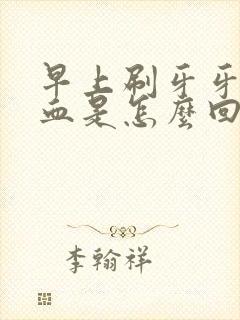 早上刷牙牙
血是怎麼回
李翰祥